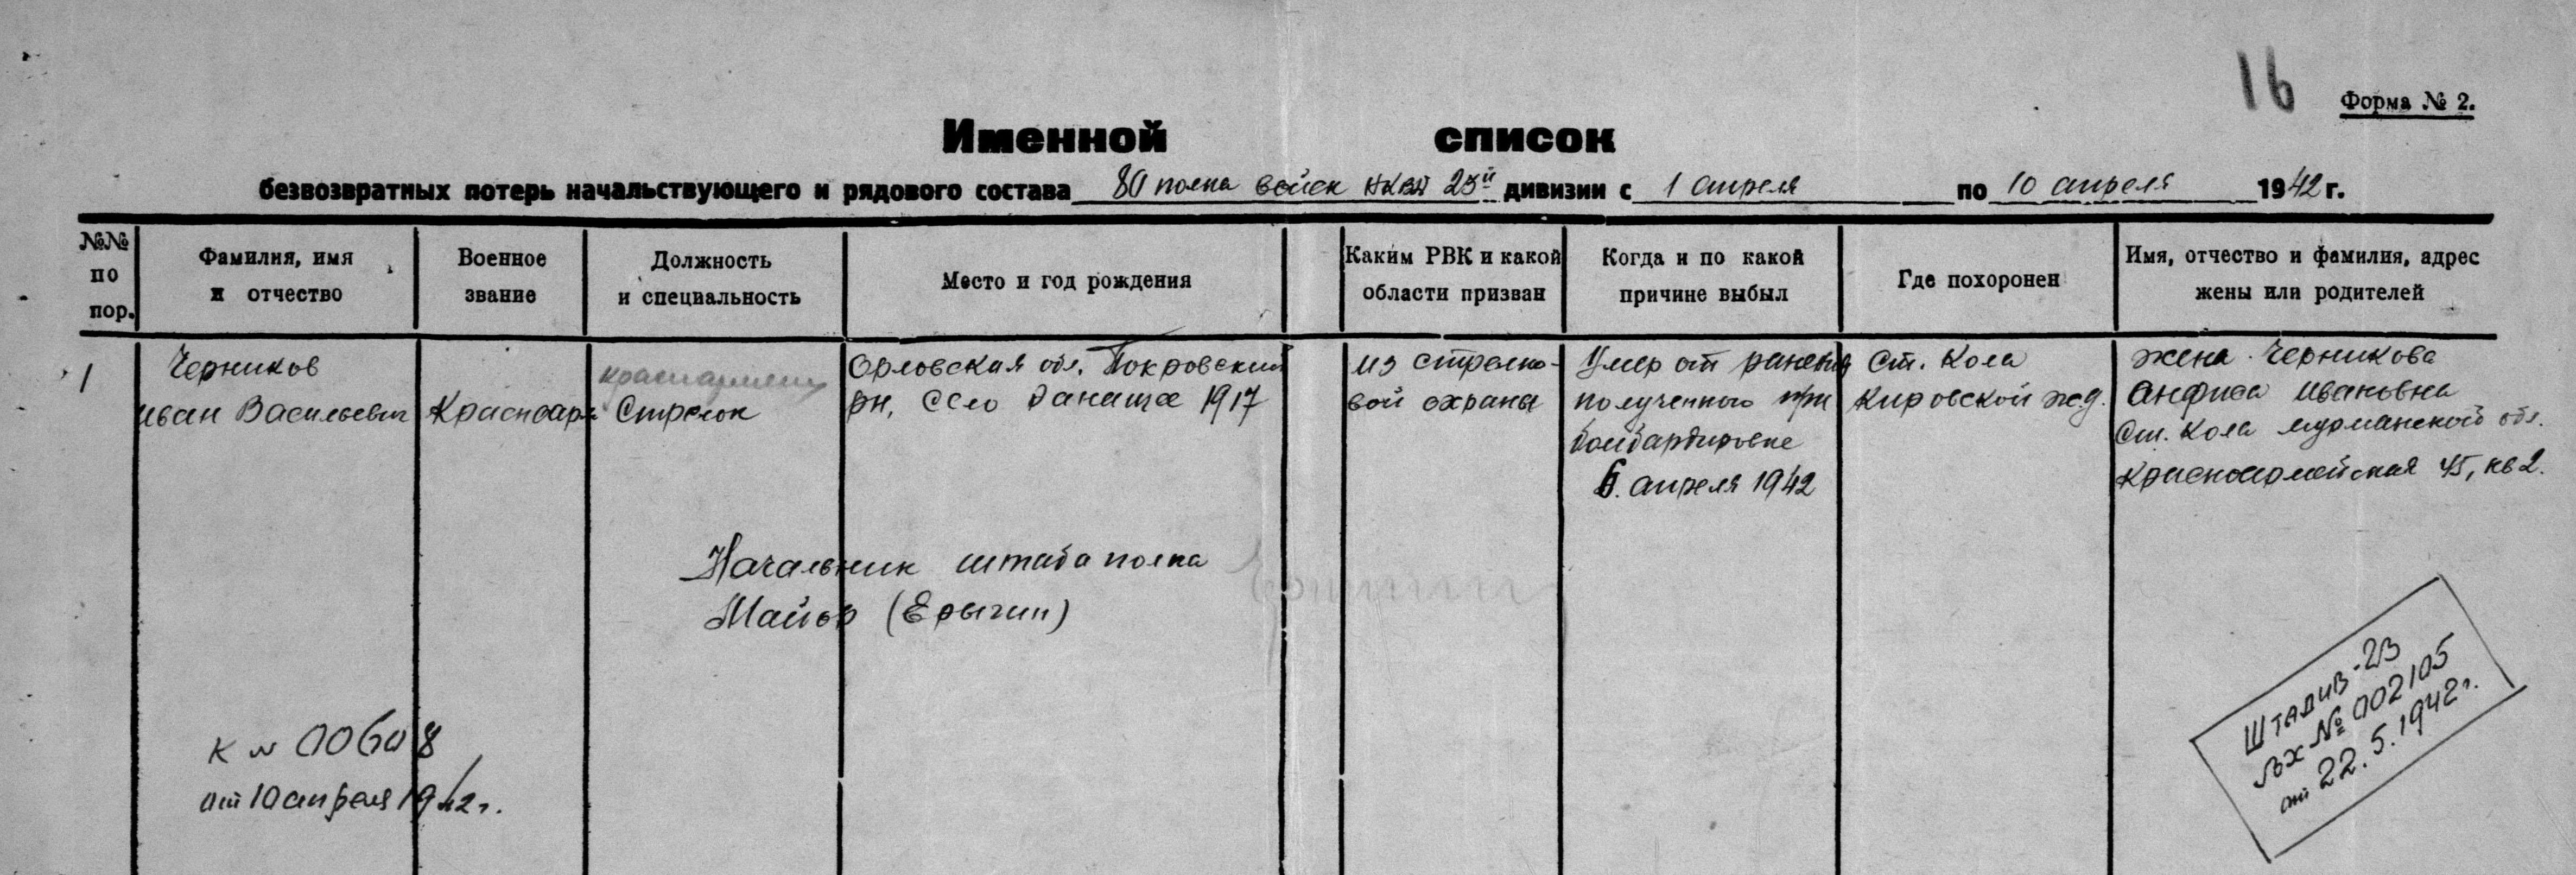 16
Форма № 2.
Именной список
безвозвратных потерь начальствующего и рядового состава 80 полка войск НКВД 23й дивизии с 1 апреля по 10 апреля 1942 г.
№№ по пор.
Фамилия, имя и отчество
Военное звание
Должность и специальность
Место и год рождения
Каким РВК и какой области призван
Когда и по какой причине выбыл
Где похоронен
Имя, отчество и фамилия, адрес жены или родителей
1
Черников
Иван Васильевич
Красноарм
красноармеец
Стрелок
Орловская обл. Покровский
рн, село Данище 1917
из стрелко-
вой охраны
Умер от ранения
полученного при
бомбардировке
6. апреля 1942
ст. Кола
Кировской ж.д.
жена Черникова
Анфиса Ивановна
ст. Кола мурманской обл.
Красноармейская 45, кв 2.
Начальник штаба полка
Майор (Ерыгин)
К №
от 10 апреля 1942 г.
Штадив-23
Вх № 002105
от 22.5.1942 г.